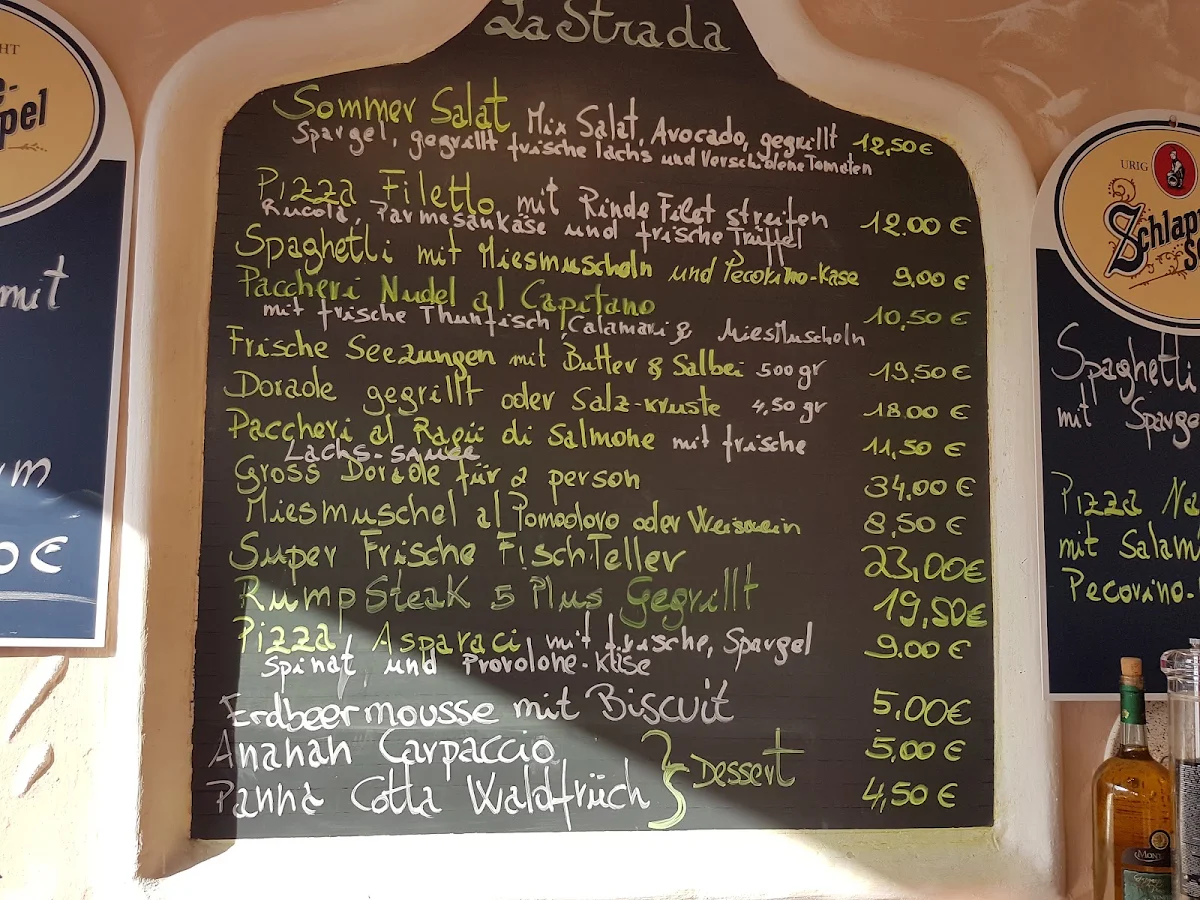 La Strada
Sommer Salat Mix Salat, Avocado, gegrillt 12,50€
Spargel, gegrillt frische lachs und Verschidene Tomaten
Pizza Filetto mit Rinde Filet streifen 12.00 €
Rucola, Parmesankäse und frische Trüffel
Spaghetti mit Miesmuscheln und Pecorino-Kase 9,00 €
Paccheri Nudel al Capitano 10,50 €
mit frische Thunfisch, Calamari & MiesMuscheln
Frische Seezungen mit Butter & Salbei 500 gr 19.50 €
Dorade gegrillt oder Salz-kruste 4,50 gr 18.00 €
Paccheri al Ragù di Salmone mit frische 11,50 €
Lachs-sauce
Gross Dorade für 2 person 34,00 €
Miesmuschel al Pomodoro oder Weiswein 8,50 €
Super Frische FischTeller 23,00€
RumpSteak 5 Plus Gegrillt 19,50€
Pizza Asparaci mit frische, Spargel 9.00 €
Spinat und Provolone-Käse
Erdbeermousse mit Biscuit 5,00€
Ananah Carpaccio 5,00 €
Dessert
Panna Cotta Waldfrüch 4,50 €
mit
0€
URIG
Schlap
Spaghetti
mit Sparge
Pizza Na
mit Salam
Pecorino-